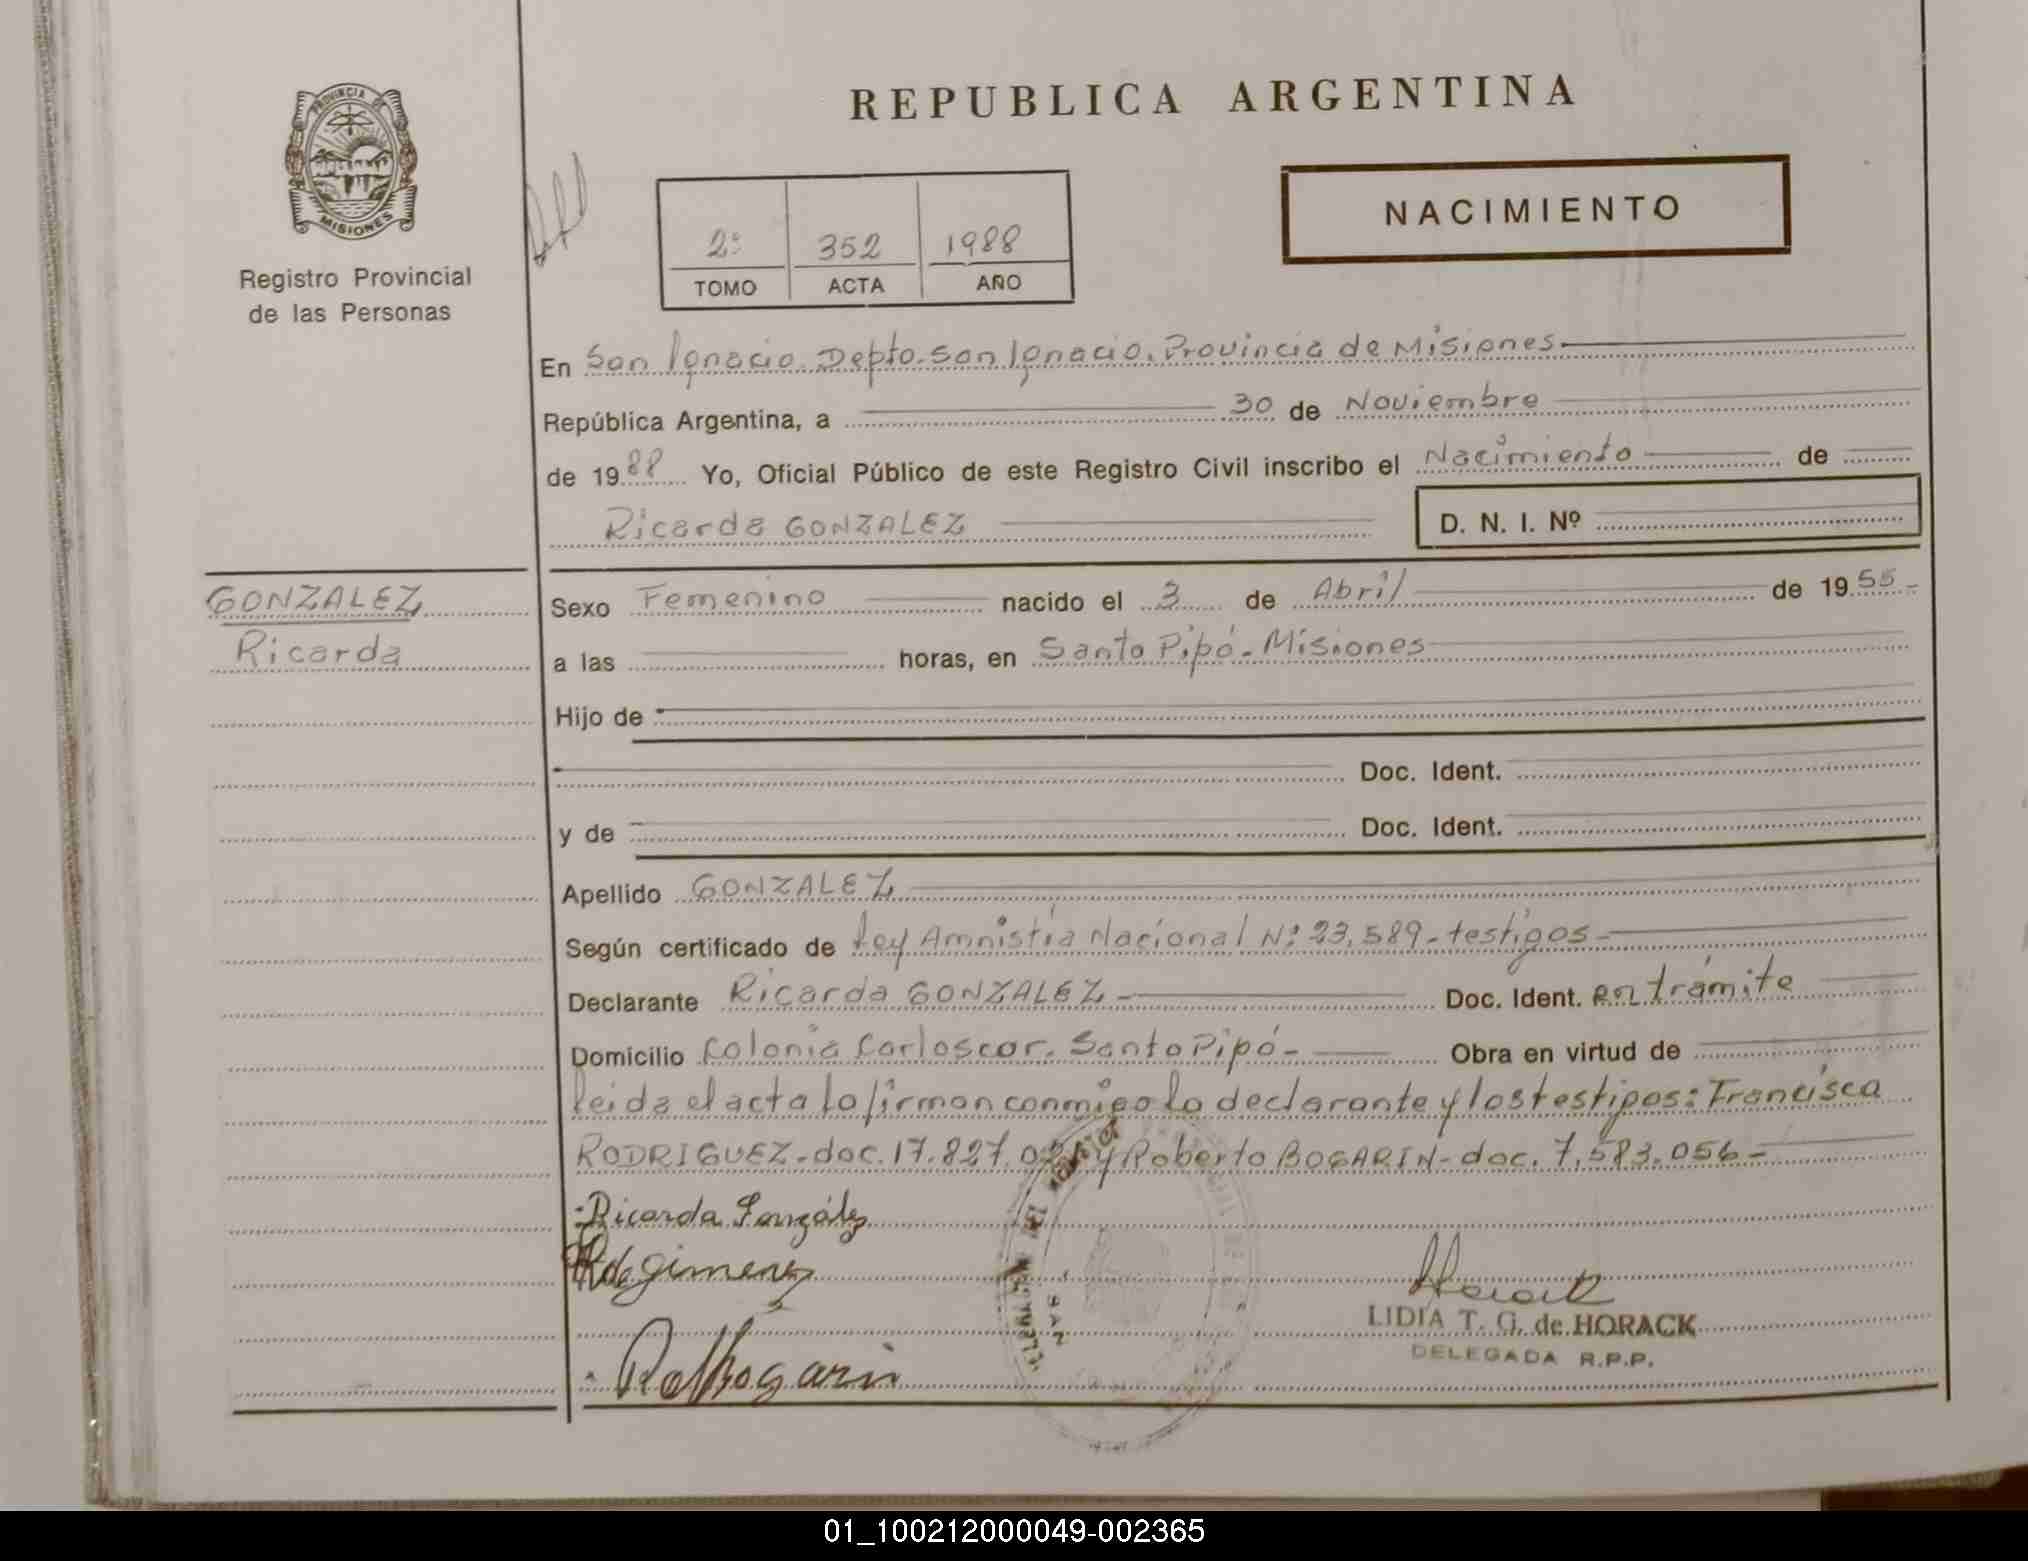 REPUBLICA ARGENTINA
PROVINCIA DE
MISIONES
Registro Provincial
de las Personas
2º 352 1988
TOMO ACTA AÑO
NACIMIENTO
En San Ignacio. Depto. San Ignacio. Provincia de Misiones
República Argentina, a 30 de Noviembre
de 1988 Yo, Oficial Público de este Registro Civil inscribo el Nacimiento de
Ricarda GONZALEZ
D. N. I. Nº
GONZALEZ
Ricarda
Sexo Femenino nacido el 3 de Abril de 1955-
a las horas, en Santo Pipó - Misiones
Hijo de
Doc. Ident.
y de Doc. Ident.
Apellido GONZALEZ
Según certificado de Ley Amnistia Nacional Nº 23.589 - testigos -
Declarante Ricarda GONZALEZ - Doc. Ident. en trámite
Domicilio Colonia Carloscor. Santo Pipó - Obra en virtud de
leida el acta la firman conmigo la declarante y los testigos: Francisca
RODRIGUEZ - doc. 17.827. y Roberto BOGARIN - doc. 7.583.056 -
Ricarda González
R de Gimenez
RoBogarin
Horack
LIDIA T. G. de HORACK
DELEGADA R.P.P.
SAN
01_100212000049-002365